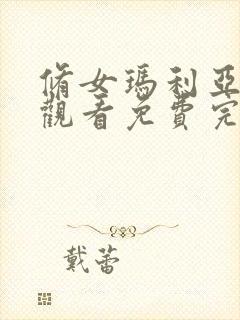 脩女瑪利亞
觀看免費完
戴蕾